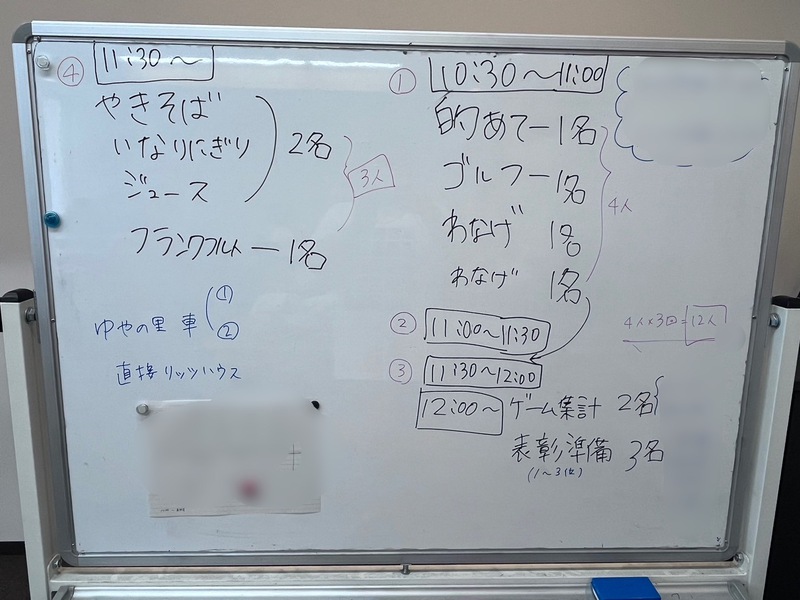 ④ 11:30～
やきそば
いなりにぎり
ジュース
2名
フランクフルト ー 1名
3人
ゆやの里 車 ① ②
直接リッツハウス
① 10:30～11:00
的あてー1名
ゴルフー1名
わなげ 1名
わなげ 1名
4人
② 11:00～11:30
③ 11:30～12:00
4人×3回=12人
12:00～ ゲーム集計 2名
表彰準備 3名
(1～3位)